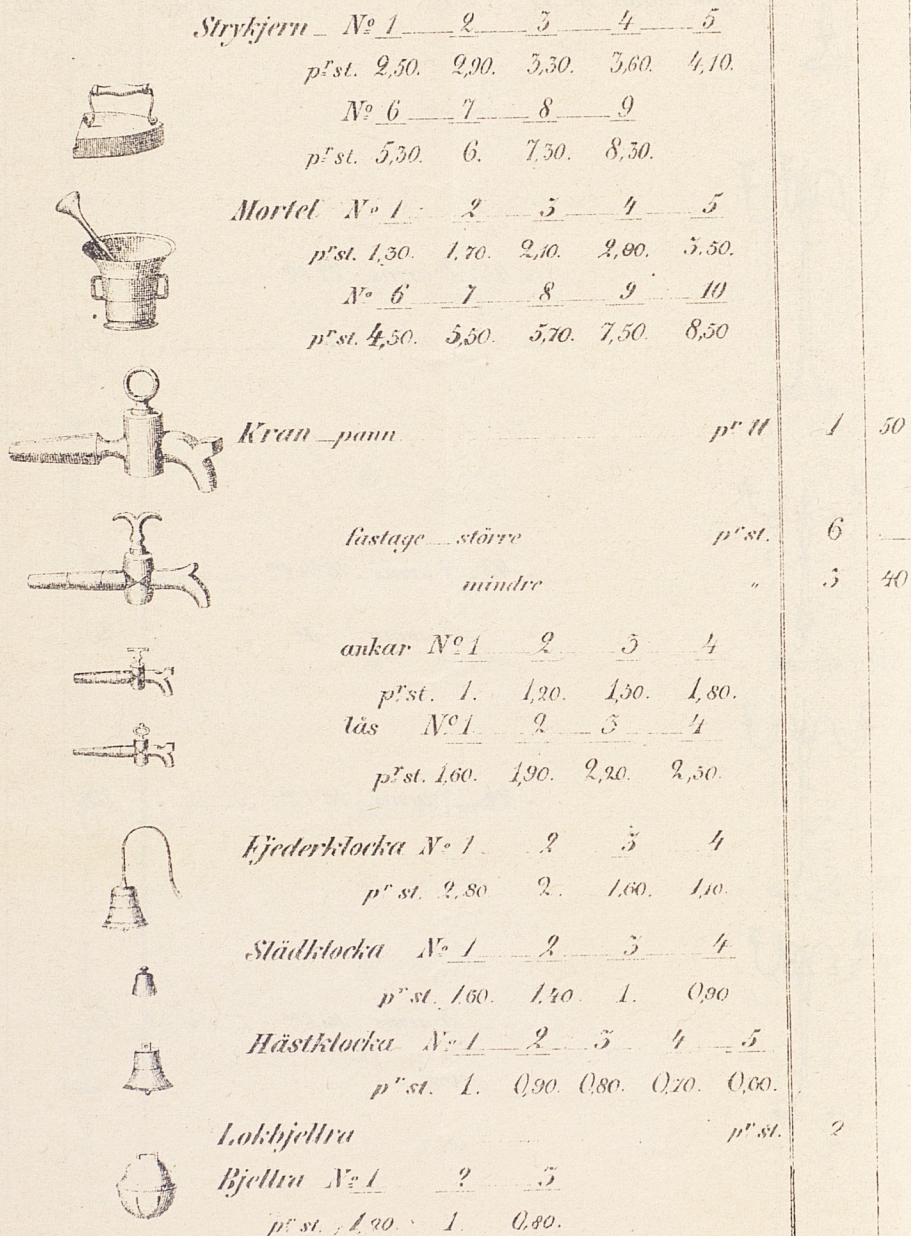 Strykjern Nº 1 2 3 4 5
pr st. 2,50. 2,90. 3,30. 3,60. 4,10.
Nº 6 7 8 9
pr st. 5,30. 6. 7,30. 8,30.
Mortel Nº 1 2 3 4 5
pr st. 1,30. 1,70. 2,10. 2,80. 3,50.
Nº 6 7 8 9 10
pr st. 4,50. 5,50. 5,70. 7,50. 8,50
Kran pann pr ℔ 1 50
fastage större pr st. 6
mindre " 3 40
ankar Nº 1 2 3 4
pr st. 1. 1,20. 1,50. 1,80.
lås Nº 1 2 3 4
pr st. 1,60. 1,90. 2,20. 2,50.
Fjederklocka Nº 1 2 3 4
pr st. 2,80 2. 1,60. 1,10.
Städklocka Nº 1 2 3 4
pr st. 1,60. 1,40 1. 0,90
Hästklocka Nº 1 2 3 4 5
pr st. 1. 0,90. 0,80. 0,70. 0,60.
Lokbjellra pr st. 2
Bjellra Nº 1 2 3
pr st. 1,20. 1. 0,80.